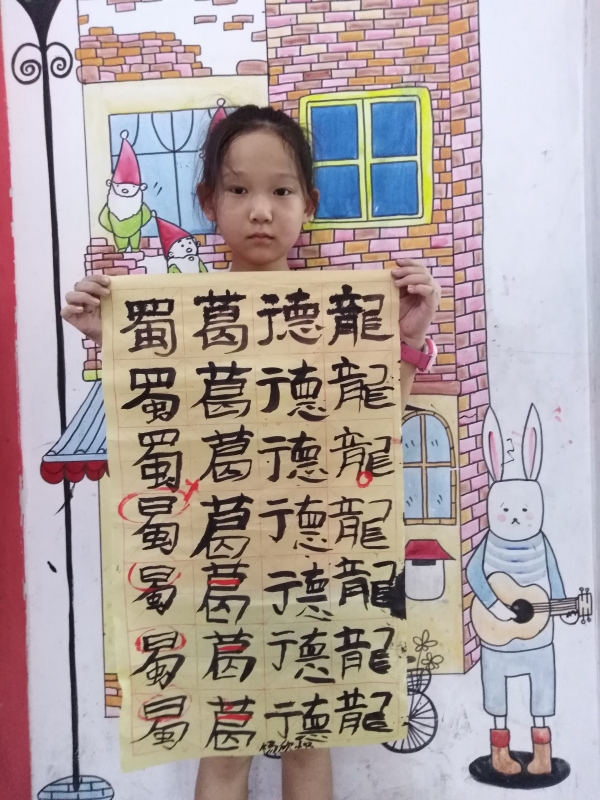 龍龍龍龍龍龍龍
德德德德德德德
葛葛葛葛葛葛葛
蜀蜀蜀蜀蜀蜀蜀